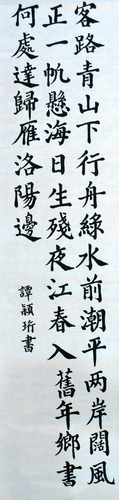 客路青山下行舟綠水前潮平两岸闊風
正一帆懸海日生殘夜江春入舊年鄉書
何處達歸雁洛陽邊
譚穎珩書